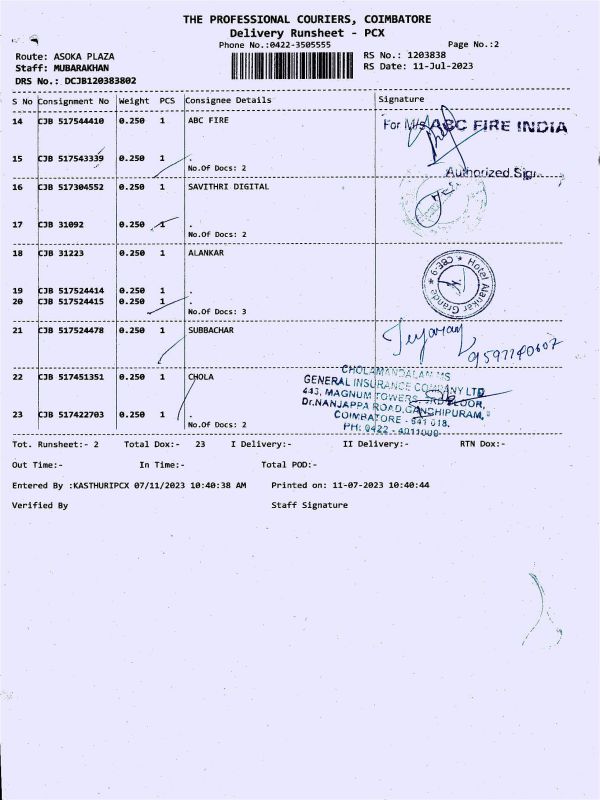 THE PROFESSIONAL COURIERS, COIMBATORE
Delivery Runsheet - PCX
Phone No.:0422-3505555 Page No.:2
Route: ASOKA PLAZA RS No.: 1203838
Staff: MUBARAKHAN RS Date: 11-Jul-2023
DRS No.: DCJB120383802
S No Consignment No Weight PCS Consignee Details Signature
14 CJB 517544410 0.250 1 ABC FIRE
For M/s ABC FIRE INDIA
15 CJB 517543339 0.250 1 .
No.Of Docs: 2
Authorized
16 CJB 517304552 0.250 1 SAVITHRI DIGITAL
17 CJB 31092 0.250 1 .
No.Of Docs: 2
18 CJB 31223 0.250 1 ALANKAR
Hotel Alankar Grande
19 CJB 517524414 0.250 1 .
20 CJB 517524415 0.250 1 .
No.Of Docs: 3
21 CJB 517524478 0.250 1 SUBBACHAR
CHOLAMANDALAM MS
22 CJB 517451351 0.250 1 CHOLA
GENERAL INSURANCE COMPANY LTD
443, MAGNUM TOWERS FLOOR,
Dr.NANJAPPA ROAD, GANDHIPURAM,
23 CJB 517422703 0.250 1 .
COIMBATORE - 641 018.
No.Of Docs: 2
PH: 0422 - 4011000
Tot. Runsheet:- 2 Total Dox:- 23 I Delivery:- II Delivery:- RTN Dox:-
Out Time:- In Time:- Total POD:-
Entered By :KASTHURIPCX 07/11/2023 10:40:38 AM Printed on: 11-07-2023 10:40:44
Verified By Staff Signature